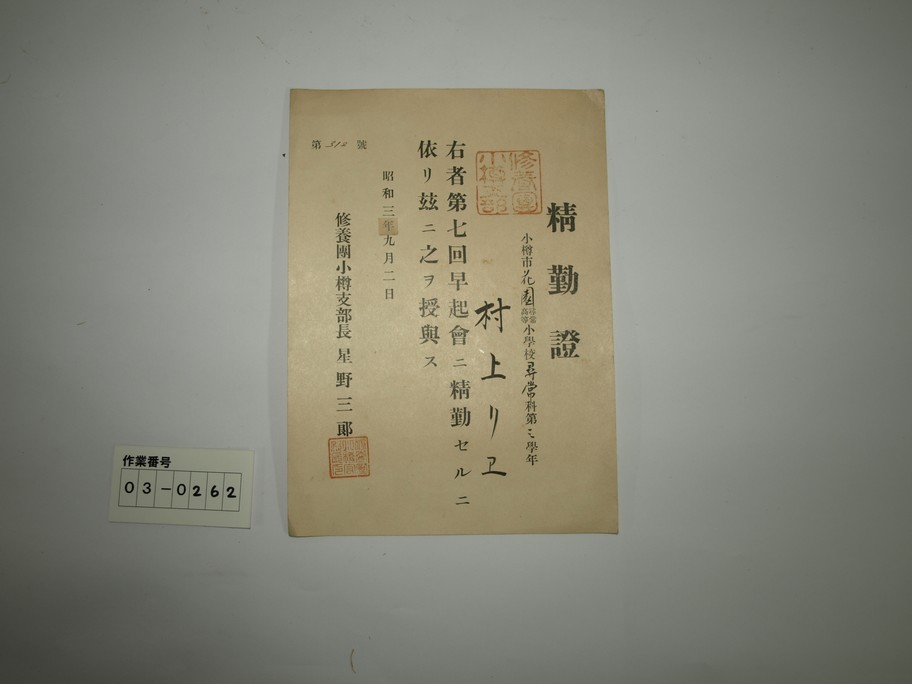 精勤證
小樽市花園尋常高等小學校尋常科第三學年
村上リヱ
右者第七回早起會ニ精勤セルニ
依リ玆ニ之ヲ授與ス
昭和三年九月二日
修養團小樽支部長 星野三郞
第512號
修養團小樽支部
作業番号
03-0262